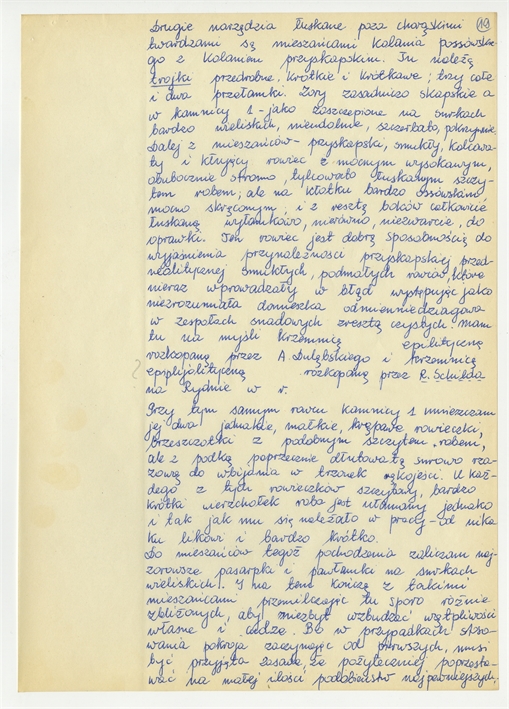 Drugie narzędzia łuskane poza chorąskimi (19)
twardzami są mieszańcami Kalania ossówskie-
go z Kalaniem przyskapskim. Tu należą
trojki przedrobne, krótkie i krótkawe; trzy całe
i dwa przełamki. Zory zasadniczo skapskie a
w kamnicy 1 - jako zaszczepione na smrkach
bardzo wieliskich, nieudolnie,
Dalej z mieszańców - przyskapski, smukły, kolcowa-
ty i kłujący rowiec z mocnym wysokawym,
obubocznie stromo, łuskanym szczy-
tem robem; ale na kłotku bardzo ossówskim
mocno skręconym, i z resztą boków całkowicie
łuskaną wyłamkowo, nierówno, niezwarcie, do
oprawki. Ten rowiec jest dobrą sposobnością do
wyjaśnienia przynależności przyskapskiej przed-
nealitycznej smukłych, podmałych rowców, które
nieraz wprowadzały w błąd występując jako
niezrozumiała domieszka odmienniedziagowa
w zespołach smadowych zresztą czystych. Mam
tu na myśli krzemnicę epilityczną
rozkopaną przez A. Dulębskiego i krzemnicę
epiplijolityczną rozkopaną przez R. Schilda
na Rydnie w r.
Przy tym samym rowcu kamnicy 1 umieszczam
jej dwa jednakie, małkie, krępawe rowieczki,
brzeszczotki z podobnym szczytem, robem,
ale z podką poprzecznie dłutowatą surowo raz-
ową do wbijania w trzonek rękojeści. U każ-
dego z tych rowieczków szczytowy, bardzo
krótki wierzchołek roba jest ułamany jednako
i tak jak mu się należało w pracy - od
i bardzo krótko.
Do mieszańców tegoż pochodzenia zaliczam naj-
zorowsze pasarpki i pawłamki na smrkach
wieliskich. I na tem kończę z takimi
mieszańcami przemilczając tu sporo różnie
zbliżonych, aby niezbyt wzbudzać wątpliwości
własne i cudze. Bo w przypadkach stoso-
wania pokroja zaczynając od pierwszych, musi
być przyjęta zasada, że pożyteczniej poprzesta-
wać na małej ilości podobieństw najpewniejszych,